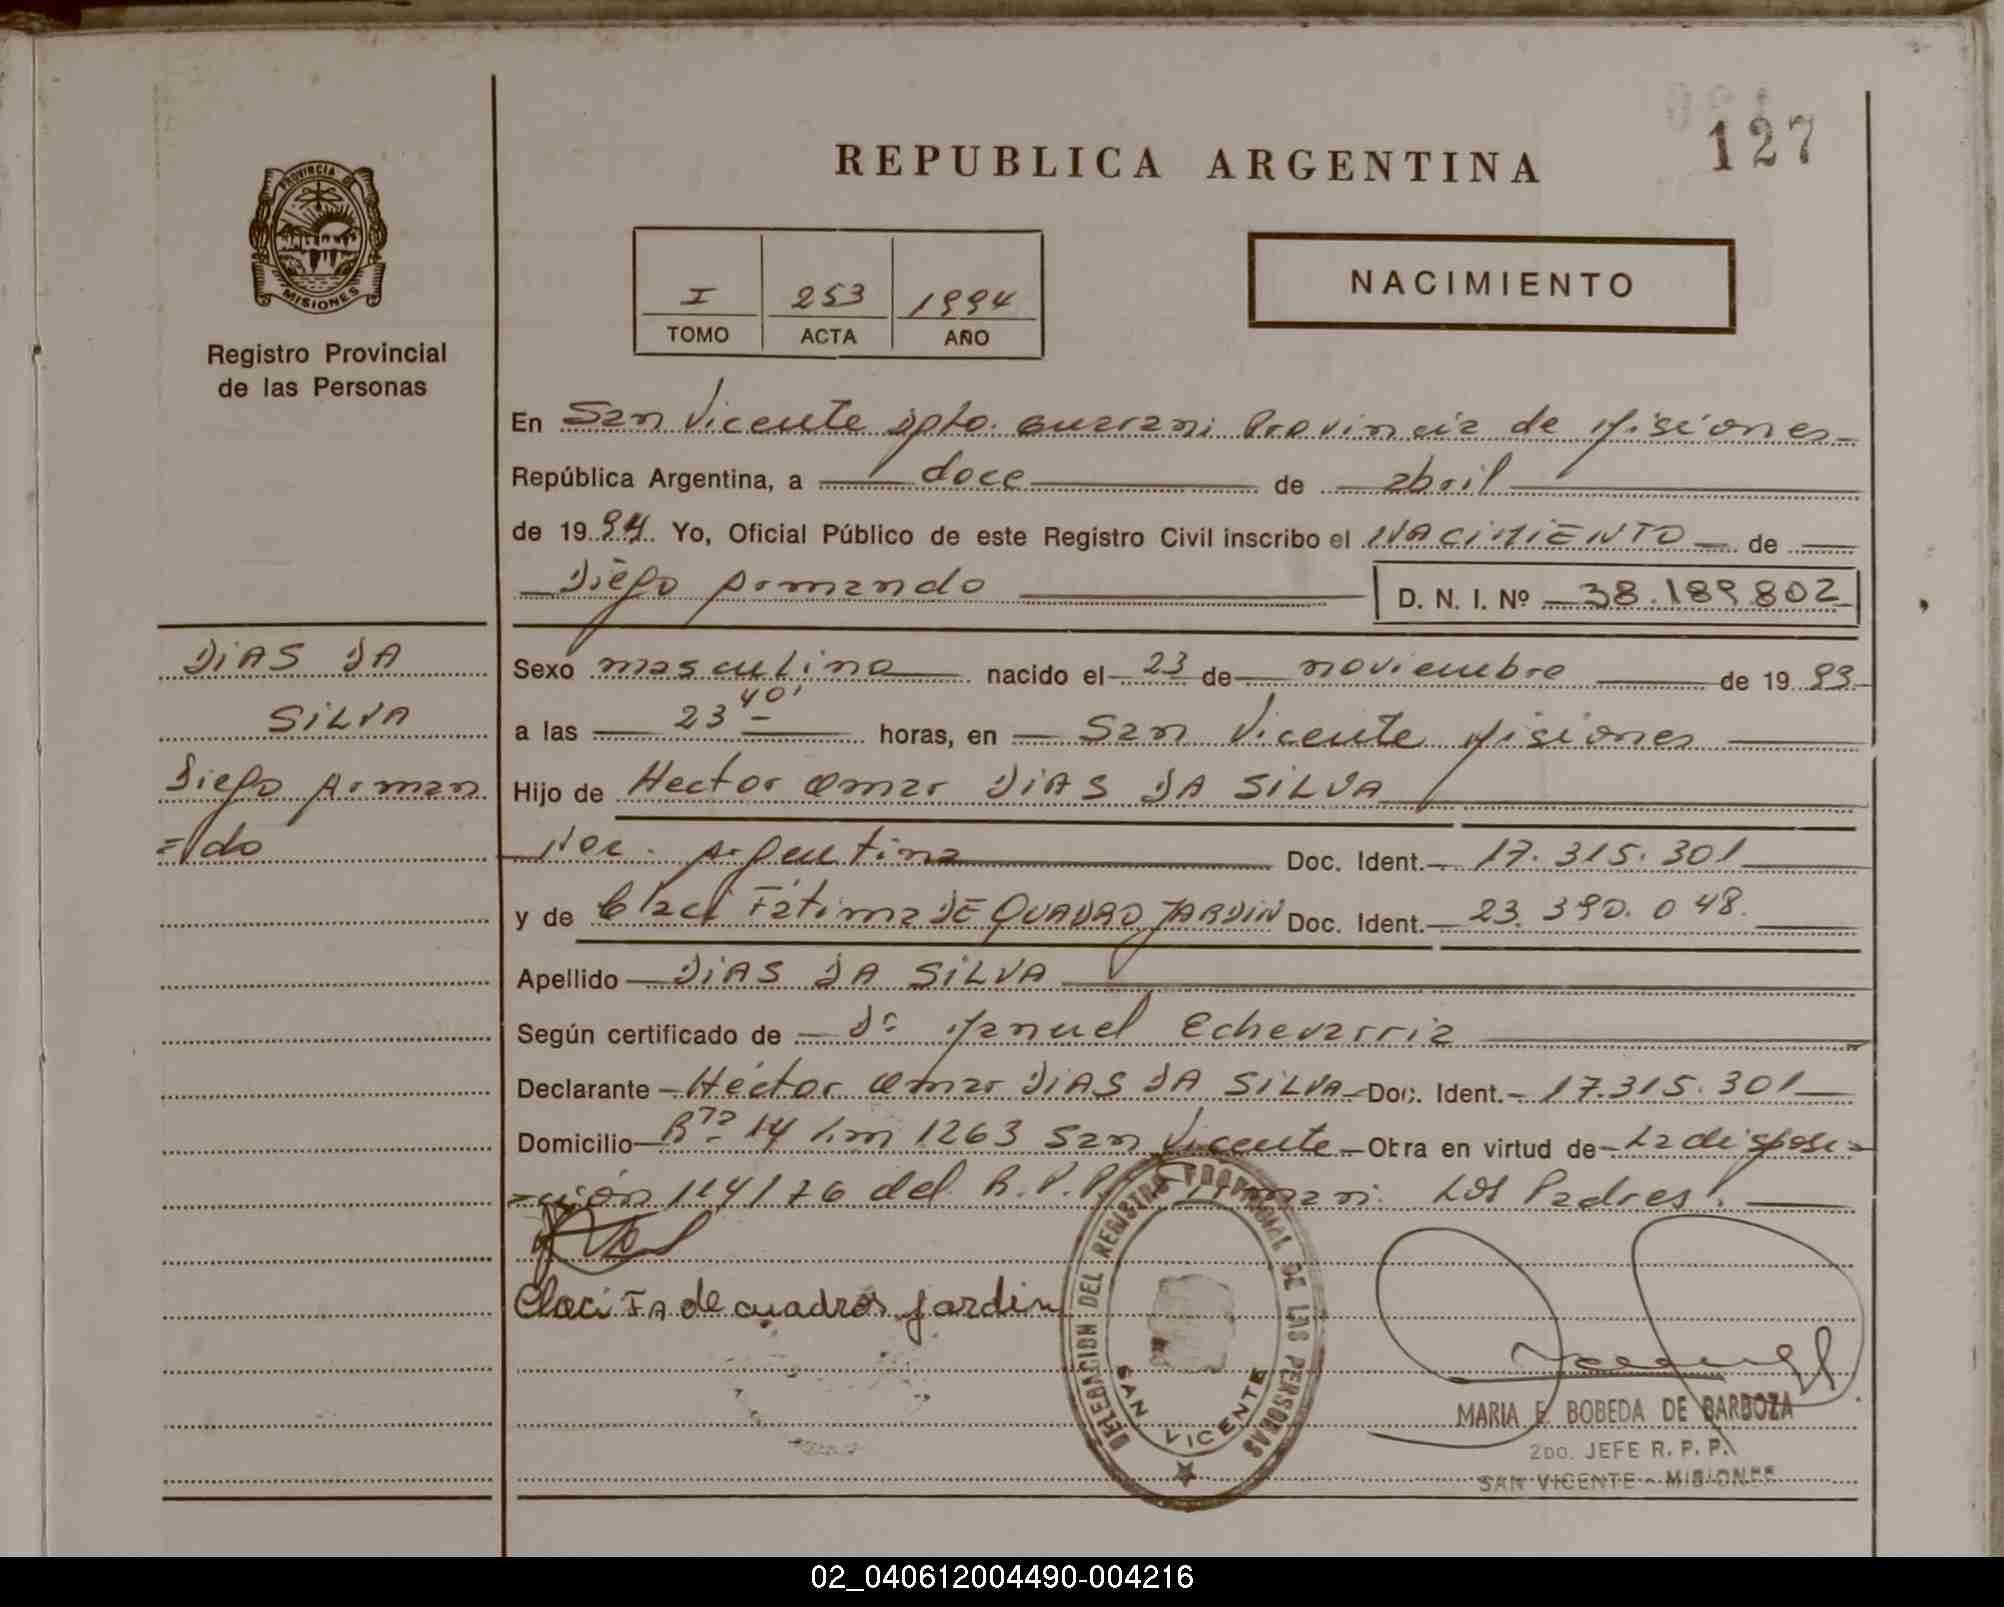 127
REPUBLICA ARGENTINA
PROVINCIA DE
MISIONES
Registro Provincial
de las Personas
I 253 1994
TOMO ACTA AÑO
NACIMIENTO
En San Vicente Dpto. Guarani Provincia de Misiones
República Argentina, a doce de abril
de 1994. Yo, Oficial Público de este Registro Civil inscribo el NACIMIENTO de
Diego Armando D. N. I. Nº 38.189.802
DIAS DA
SILVA
Diego Arman
=do
Sexo masculino nacido el 23 de noviembre de 1993
a las 23 40' horas, en San Vicente Misiones
Hijo de Hector Omar DIAS DA SILVA
Nac. Argentina Doc. Ident. 17.315.301
y de Claci Fátima DE QUADRO JARDIN Doc. Ident. 23.390.048.
Apellido DIAS DA SILVA
Según certificado de Dr Manuel Echevarria
Declarante Héctor Omar DIAS DA SILVA Doc. Ident. 17.315.301
Domicilio Rta 14 km 1263 San Vicente Obra en virtud de La disposi=
=ción 114/76 del R.P.P. Firman. Los Padres.
Claci Fa de cuadros jardin
DELEGACION DEL REGISTRO PROVINCIAL DE LAS PERSONAS
SAN VICENTE
MARIA E. BOBEDA DE BARBOZA
2DO. JEFE R. P. P.
SAN VICENTE - MISIONES
02_040612004490-004216